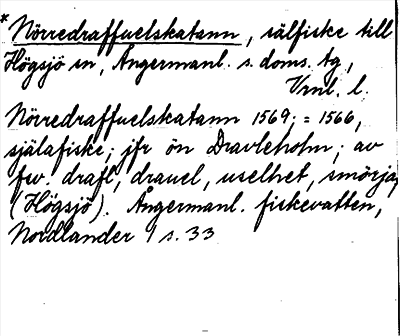 * Nörredraffuelskatann, sälfiske till
Högsjö sn, Ångermanl. s. doms. tg,
Vnl. l.
Nörredraffuelskatann 1569; = 1566,
själafiske; jfr ön Dravleholm; av
fw. drafl, drauel, uselhet, smörja,
(Högsjö). Ångermanl. fiskevatten,
Nordlander 1 s. 33